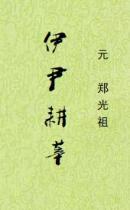 伊尹耕莘
元 郑光祖